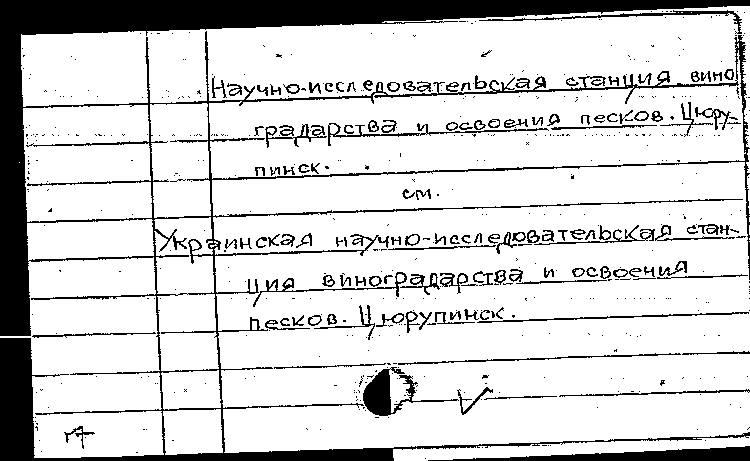 Научно-исследовательская станция вино
градарства и освоения песков. Цюру-
пинск.
см.
Украинская научно-исследовательская стан-
ция виноградарства и освоения
песков. Цюрупинск.